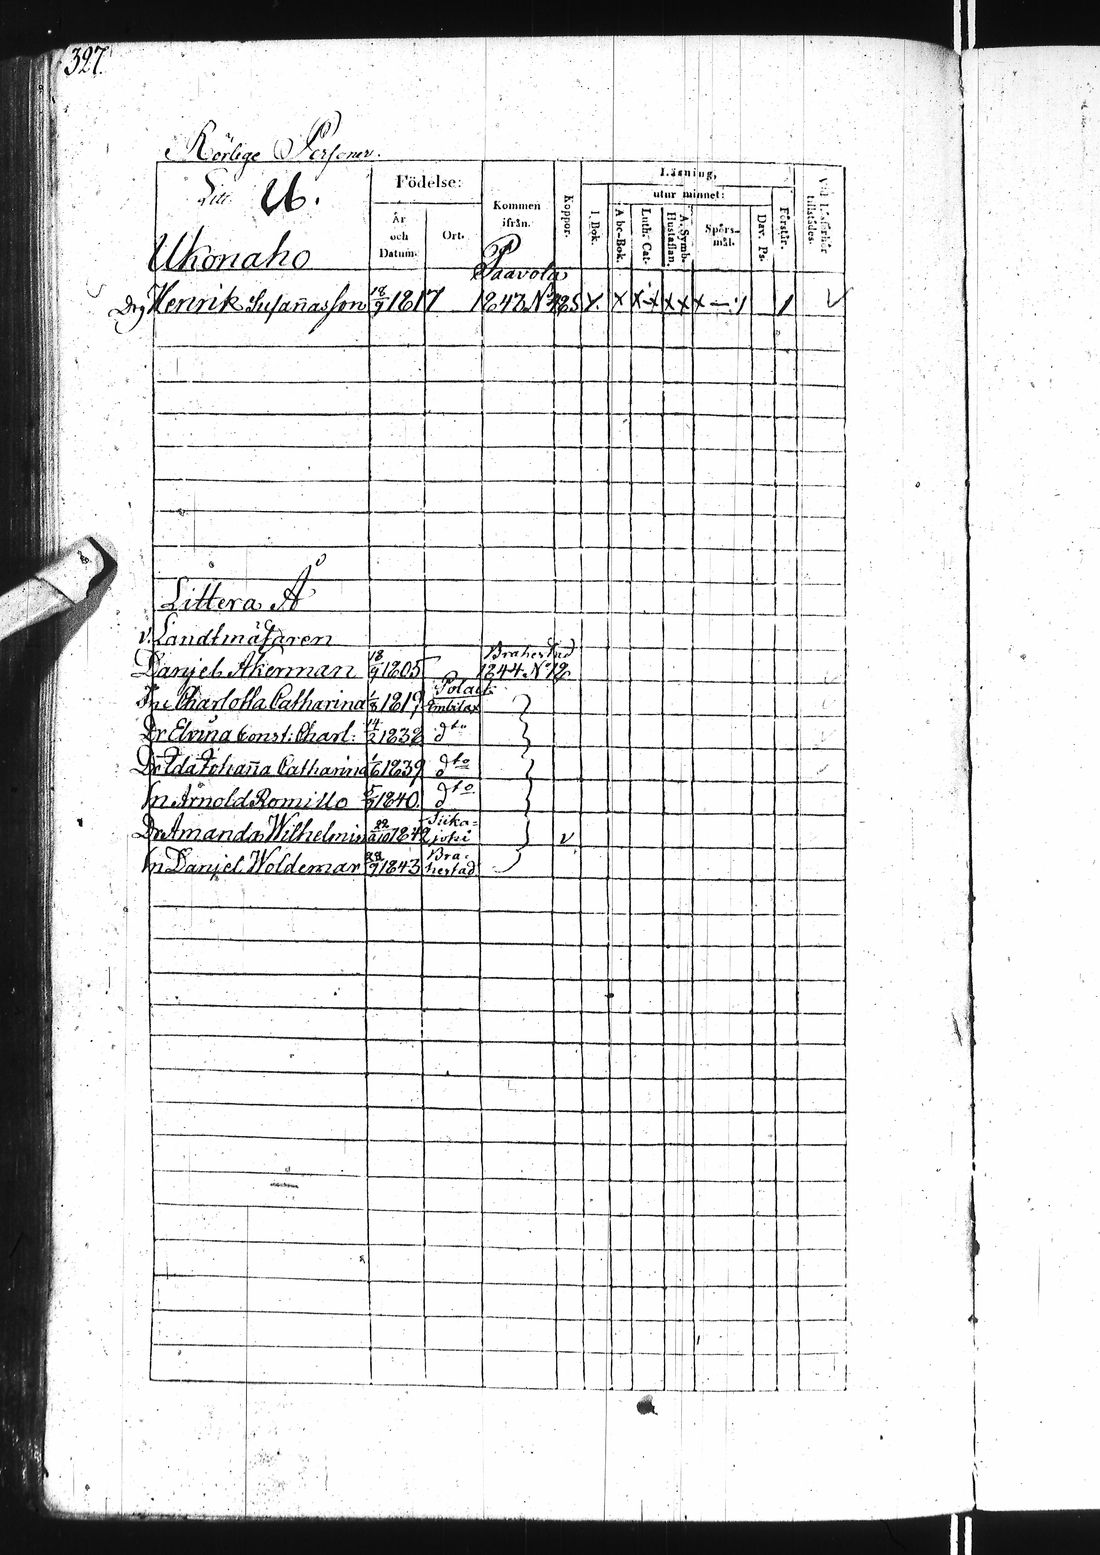 327.
Rörlige Personer.
Litt. U.
Födelse:
År och Datum.
Ort.
Kommen ifrån.
Koppor.
Läsning,
I. Bok.
utur minnet:
Abc-Bok.
Luth. Cat.
A. Symb. Hustaflan.
Spörs-mål.
Dav. Ps.
Förstår.
Vid Läsförhör tillstädes.
Ukonaho
Paavola
Drg Henrik Susañasson 18/9 1817 1847 N X X X X X X X — 1
Littera Å
v. Landtmätaren
Brahestad
Daniel Åkerman 18/9 1805 1844 N 12
Charlotta Catharina 1819
Dr Elvina Const: Charl: 14/2 1838 dto
Dr Ida Johaña Catharina 1839 dto
Sn Arnold Romillo 1840 dto
Dr Amanda Wilhelmina 22/10 1842 Siika-joki v
Sn Daniel Woldemar 28/9 1843 Bra-hestad